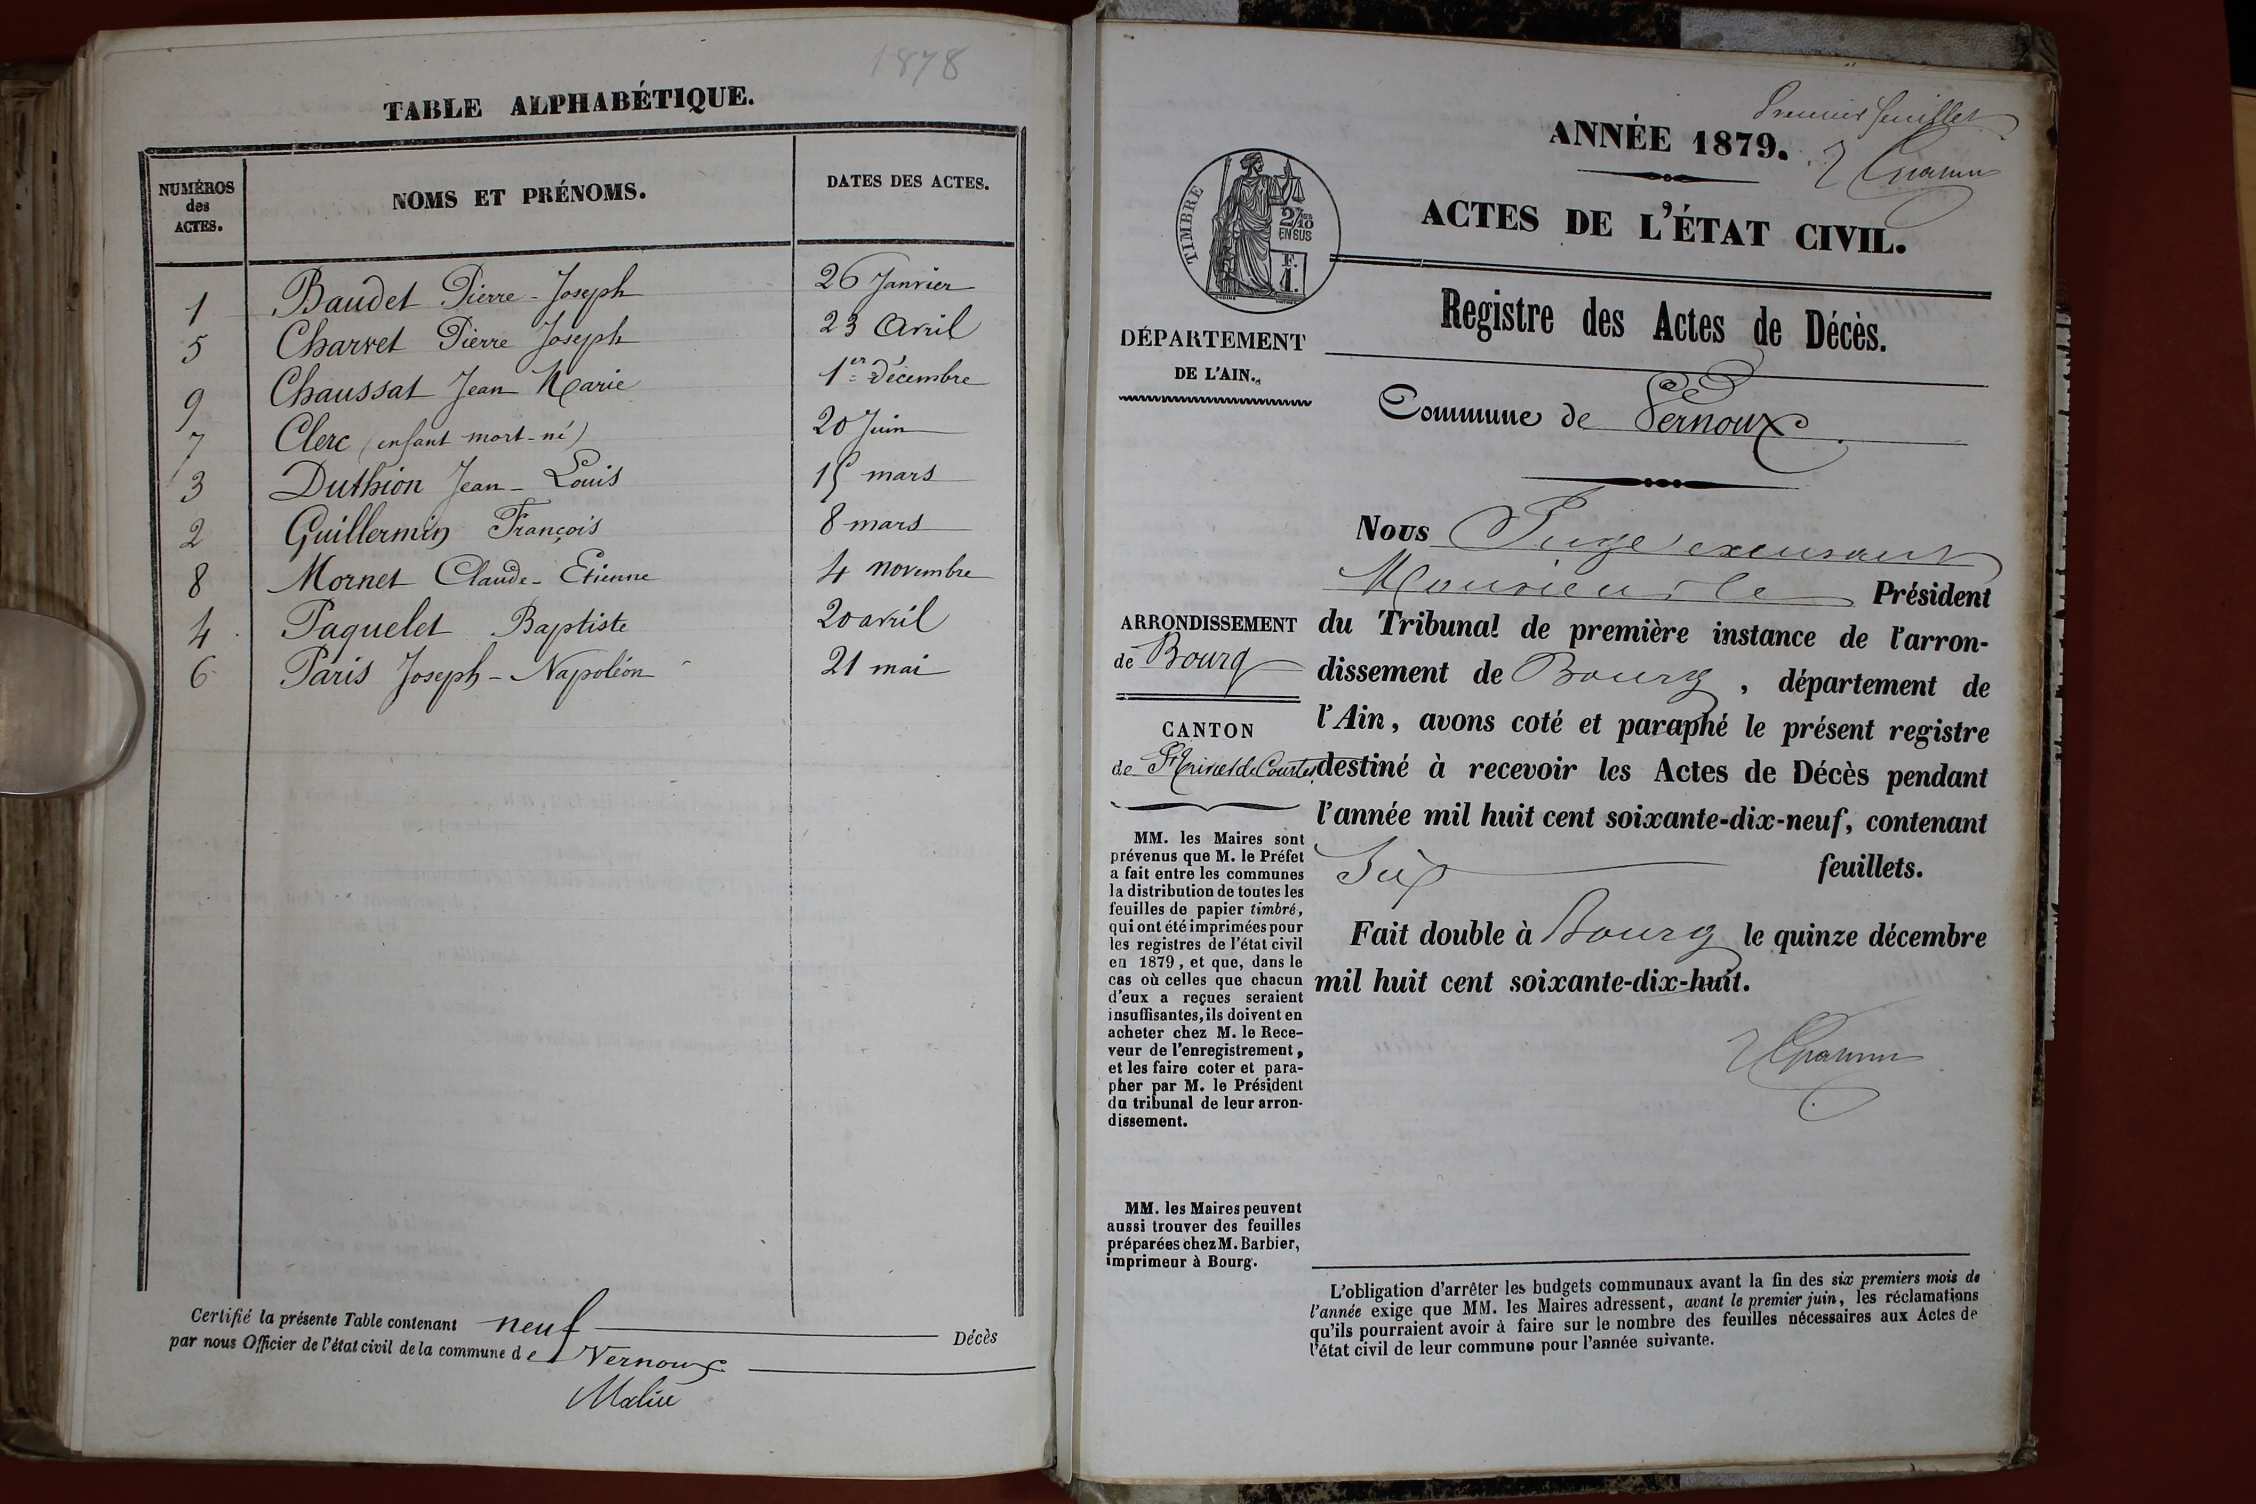 1878
TABLE ALPHABÉTIQUE.
NUMÉROS des ACTES. NOMS ET PRÉNOMS. DATES DES ACTES.
1 Baudet Pierre-Joseph 26 Janvier
5 Charvet Pierre Joseph 23 Avril
9 Chaussat Jean Marie 1er Décembre
7 Clerc (enfant mort-né) 20 Juin
3 Duthion Jean-Louis 15 mars
2 Guillermin François 8 mars
8 Mornet Claude-Etienne 4 novembre
4 Paquelet Baptiste 20 avril
6 Paris Joseph-Napoléon 21 mai
Certifié la présente Table contenant neuf Décès
par nous Officier de l'état civil de la commune de Vernoux
Premier feuillet
ANNÉE 1879.
ACTES DE L'ÉTAT CIVIL.
TIMBRE
2/10
EN SUS
F.
1.
Registre des Actes de Décès.
DÉPARTEMENT
DE L'AIN.
Commune de Vernoux
ARRONDISSEMENT
de Bourg
CANTON
de St Trivier de Courtes
MM. les Maires sont
prévenus que M. le Préfet
a fait entre les communes
la distribution de toutes les
feuilles de papier timbré,
qui ont été imprimées pour
les registres de l'état civil
en 1879, et que, dans le
cas où celles que chacun
d'eux a reçues seraient
insuffisantes, ils doivent en
acheter chez M. le Rece-
veur de l'enregistrement,
et les faire coter et para-
pher par M. le Président
du tribunal de leur arron-
dissement.
MM. les Maires peuvent
aussi trouver des feuilles
préparées chez M. Barbier,
imprimeur à Bourg.
Nous Juge
Monsieur le Président
du Tribunal de première instance de l'arron-
dissement de Bourg, département de
l'Ain, avons coté et paraphé le présent registre
destiné à recevoir les Actes de Décès pendant
l'année mil huit cent soixante-dix-neuf, contenant
Six feuillets.
Fait double à Bourg le quinze décembre
mil huit cent soixante-dix-huit.
L'obligation d'arrêter les budgets communaux avant la fin des six premiers mois de
l'année exige que MM. les Maires adressent, avant le premier juin, les réclamations
qu'ils pourraient avoir à faire sur le nombre des feuilles nécessaires aux Actes de
l'état civil de leur commune pour l'année suivante.